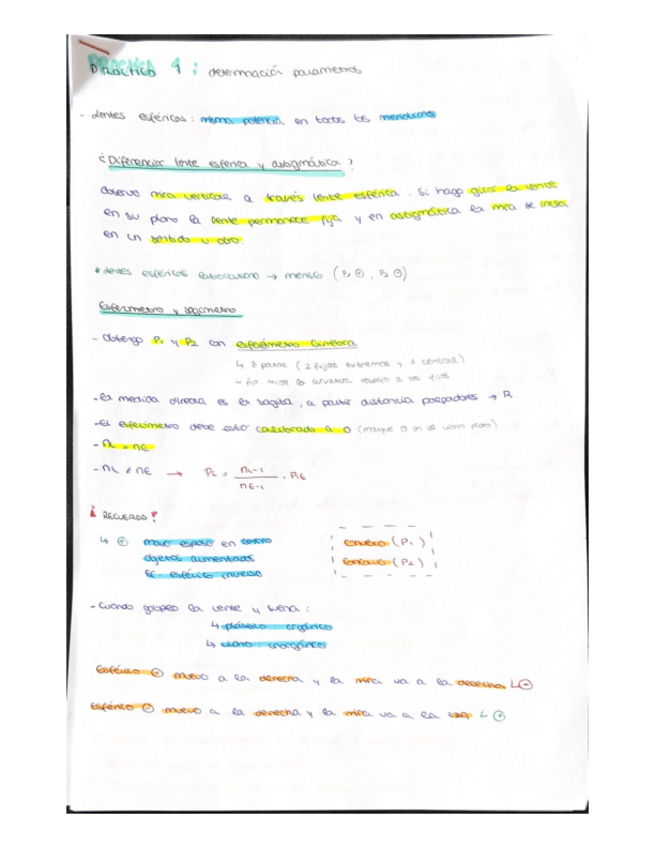 PRÁCTICA 1: determinación parámetros
- Lentes esféricas: misma potencia en todos los meridianos
¿Diferenciar lente esférica y astigmática?
observo mira vertical a través lente esférica. Si hago girar la lente
en su plano la lente permanece fija y en astigmática la mira se inclina
en un sentido u otro.
* Lentes esféricas → menisco (P1 ⊕, P2 ⊖)
Esferómetro y
- Obtengo P1 y P2 con esferómetro Ginebra
↳ 3 patas (2 fijas extremos y 1 central)
↳ mide la respecto a las fijas
- La medida directa es la sagita, a partir distancia palpadores → R
- El esferómetro debe estar calibrado a 0 (marque 0 en el vidrio plano)
- nL = nE
- nL ≠ nE → PL = nL-1 / nE-1 · PE
¡RECUERDO!
↳ ⊕ mayor espesor en centro
objetos aumentados
esférico inverso
convexo (P1)
cóncavo (P2)
- Cuando golpeo la lente y suena:
↳ plástico orgánico
↳ vidrio inorgánico
Esférico ⊕ muevo a la derecha y la mira va a la derecha ↳ ⊖
esférico ⊖ muevo a la derecha y la mira va a la izq ↳ ⊕